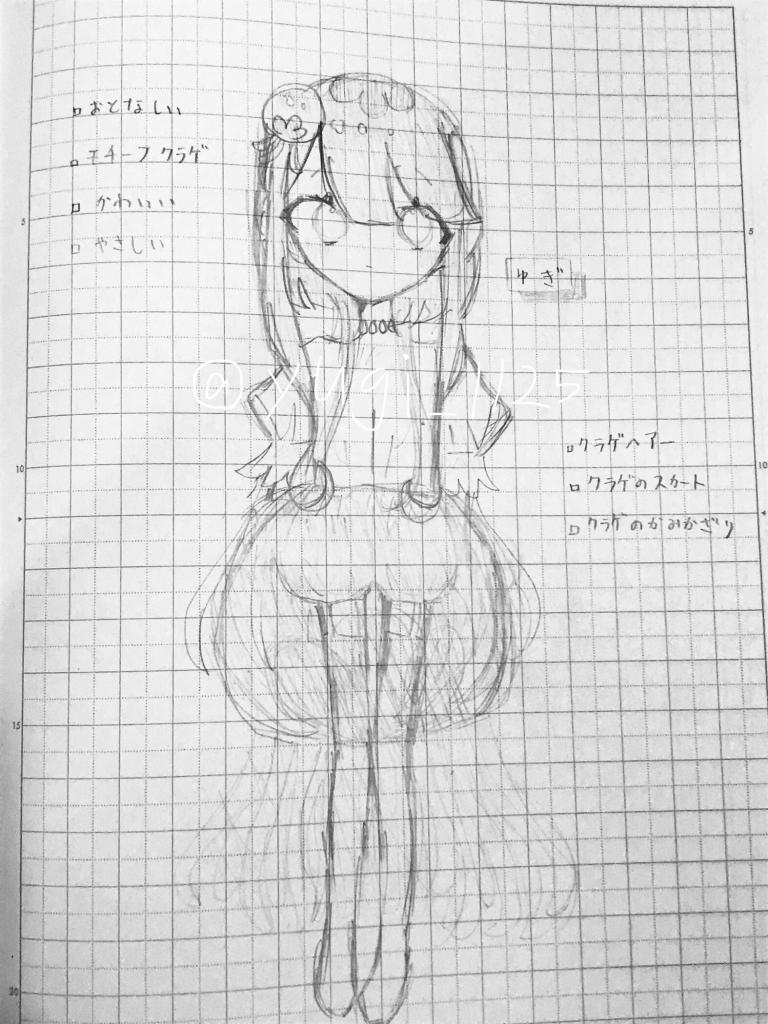 □おとなしい
□モチーフ クラゲ
□かわいい
□やさしい
ゆぎ
@yugi_1125
□クラゲヘアー
□クラゲのスカート
□クラゲのかみかざり
5
10
15
20
5
10